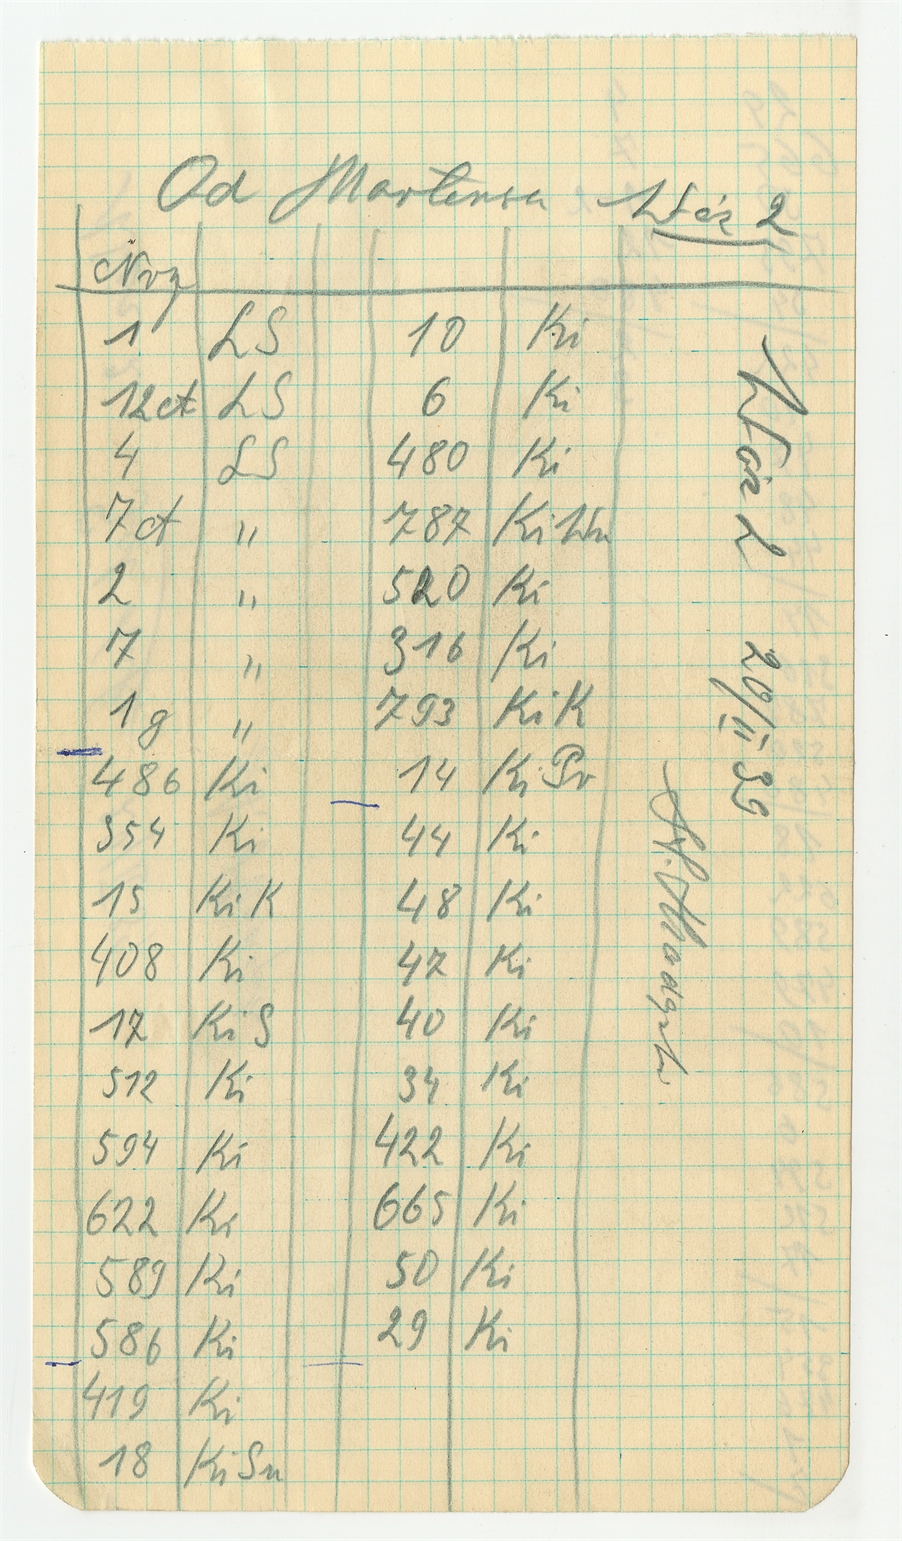 Od Martensa Wóz 2
Nry
1 LS 10 Ki
12ct LS 6 Ki
4 LS 480 Ki
7 ct " 787 Ki Wn
2 " 520 Ki
7 " 316 Ki
1 g " 793 Ki K
486 Ki 14 Ki Pr
354 Ki 44 Ki
15 Ki K 48 Ki
408 Ki 47 Ki
17 Ki S 40 Ki
512 Ki 34 Ki
594 Ki 422 Ki
622 Ki 665 Ki
589 Ki 50 Ki
586 Ki 29 Ki
419 Ki
18 Ki Sn
Wóz 2 20/II 39